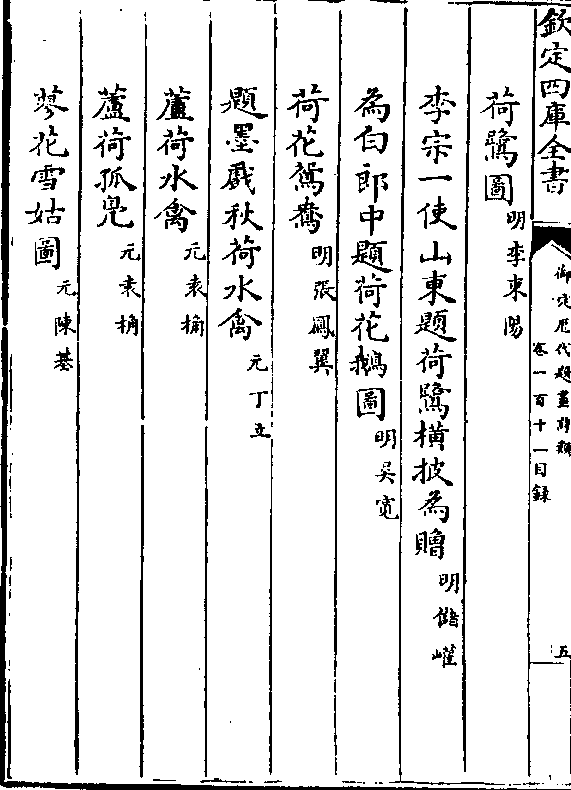 欽定四庫全書
御定歴代題畫詩類
卷一百十一目録
五
荷鷺圖 明李東陽
李宗一使山東題荷鷺橫披為贈 明儲巏
為白郎中題荷花鵝圖 明吳寛
荷花鴛鴦 明張鳳翼
題墨戲秋荷水禽 元丁立
蘆荷水禽 元袁桷
蘆荷孤鳬 元袁桷
蓼花雪姑圖 元陳基